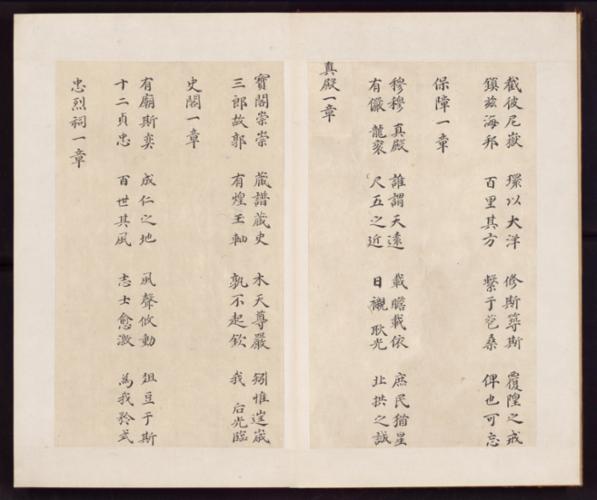 截彼尼嶽 環以大洋 修斯築斯 覆隍之戒
鎮玆海邦 百里其方 繫于苞桑 俾也可忘
保障一章
穆穆 真殿 誰謂天遠 載瞻載依 庶民猶星
有儼 龍袞 尺五之近 日襯耿光 北拱之誠
真殿一章
寶閣崇崇 藏譜藏史 木天尊嚴 矧惟歲
三郎故郭 有煌玉軸 孰不起欽 我 后光臨
史閣一章
有廟斯奕 成仁之地 風聲攸動 俎豆于斯
十二貞忠 百世其風 志士愈激 為我矜式
忠烈祠一章